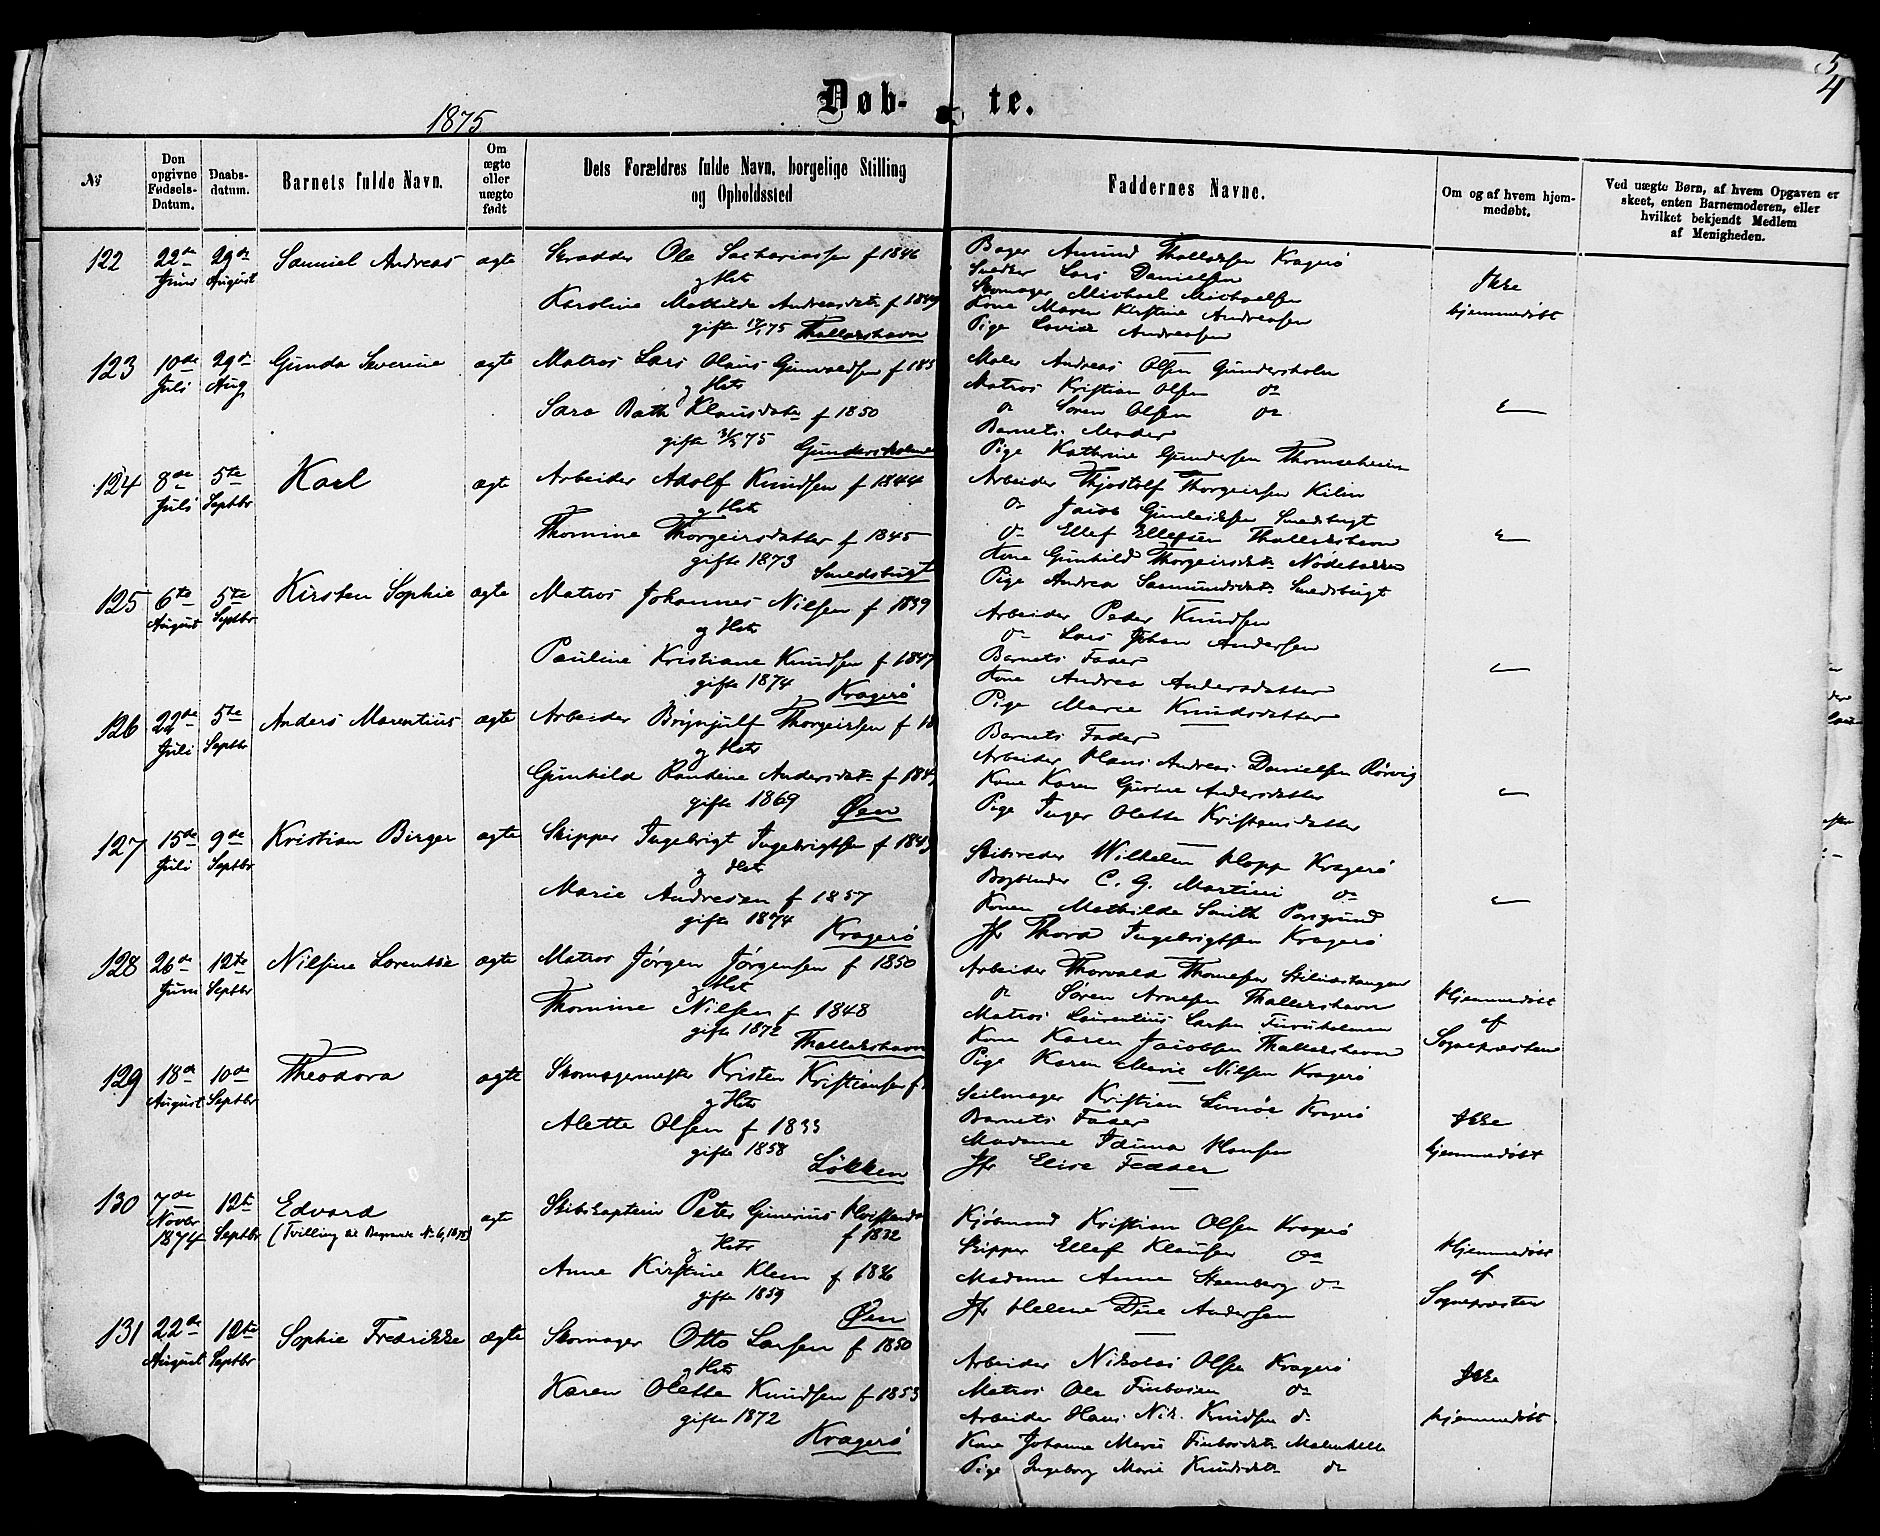 5
4
1875
Døb- te.
№
Den opgivne Fødsels-Datum.
Daabs-datum.
Barnets fulde Navn.
Om ægte eller uægte født
Dets Forældres fulde Navn, borgelige Stilling og Opholdssted
Faddernes Navne.
Om og af hvem hjemmedøbt.
Ved uægte Børn, af hvem Opgaven er skeet, enten Barnemoderen, eller hvilket bekjendt Medlem af Menigheden.
122 22de Juni 29de August Samuel Andreas ægte
Skrædder Ole Sachariassen f 1846
og Hst
Karoline Mathilde Andreasdatr f 1849
gifte 75 Thallershavn
Bager Amund Kragerø
Lars Danielsen
Skomager Michael Michaelsen
Kone Maren Kirstine Andreasen
Pige Lovise Andreasen
Ikke
hjemmedøbt
123 10de Juli 29d Aug Gunda Severine ægte
Matros Lars Olaus Gunvaldsen f 185
og Hst
Sara Bath Klausdatr f 1850
gifte 75
Gundersholmen
Maler Andreas Olsen Gundersholm
Matros Kristian Olsen do
do Søren Olsen do
Barnets Moder
Pige Kathrine Gundersen
124 8de Juli 5te Septbr Karl ægte
Arbeider Adolf Knudsen f 1844
og Hst
Thomine Thorgeirsdatter f 1845
gifte 1873
Smedsbugt
Arbeider Thjostolf Thorgeirsen Kilen
do Jacob Smedsbugt
do Ellef Ellefsen Thallershavn
Kone Gunhild Thorgeirsdatr
Pige Andrea Samundsdatr Smedsbugt
125 6te August 5te Septbr Kirsten Sophie ægte
Matros Johannes Nilsen f 1839
og Hst
Pauline Kristiane Knudsen f 1847
gifte 1874
Kragerø
Arbeider Peder Knudsen
do Lars Johan Andersen
Barnets Fader
Kone Andrea Andersdatter
Pige Marie Knudsdatter
126 22de Juli 5te Septbr Anders Marentius ægte
Arbeider Brynjulf Thorgeirsen f 18
og Hst
Gunhild Randine Andersdatr f 184
gifte 1869
Øen
Barnets Fader
Arbeider Hans Andreas Danielsen Rørvig
Kone Karen Gurine Andersdatter
Pige Inger Olette Kristensdatter
127 15de Juli 9de Septbr Kristian Birger ægte
Skipper Ingebrigt Ingebrigtsen f 1843
og Hst
Marie Andresen f 1857
gifte 1874
Kragerø
Skibsreder Wilhelm Hopp Kragerø
Bogbinder C. G. Martini do
Konen Mathilde Smith Porsgrund
Jfr Thora Ingebrigtsen Kragerø
128 26de Juni 12te Septbr Nilsine Lorentse ægte
Matros Jørgen Jørgensen f 1850
og Hst
Thomine Nilsen f 1848
gifte 1872
Thallershavn
Arbeider Thorvald Thomesen Stilnestangen
do Søren Arnesen Thallershavn
Matros Laurentius Larsen Furuholmen
Kone Karen Jacobsen Thallershavn
Pige Karen Marie Nilsen Kragerø
Hjemmedøbt
af
Sognepræsten
129 18de August 10de Septbr Theodora ægte
Skomagermester Kristen Kristiansen f
og Hst
Alette Olsen f 1833
gifte 1858
Løkken
Seilmager Kristian Kragerø
Barnets Fader
Madame Iduna Hansen
Jfr Elise Fedder
Ikke
hjemmedøbt
130 7de Novbr 1874 12te Septbr Edvard
(Tvilling til No 6, 1875) ægte
Skibskaptein Peter Gunerius
f 1832
og Hst
Anne Kirstine Klem f 1836
gifte 1859
Øen
Kjøbmand Kristian Olsen Kragerø
Skipper Ellef Klausen do
Madame Anne Steenberg do
Jfr Helene Due Andersen
Hjemmedøbt
af
Sognepræsten
131 22de August 12te Septbr Sophie Fredrikke ægte
Skomager Otto Larsen f 1850
og Hst
Karen Olette Knudsen f 1853
gifte 1872
Kragerø
Arbeider Nikolai Olsen Kragerø
Matros Ole Finboisen do
Arbeider Hans Nik. Knudsen do
Kone Johanne Marie
Pige Ingeborg Marie Knudsdatr do
Ikke
hjemmedøbt